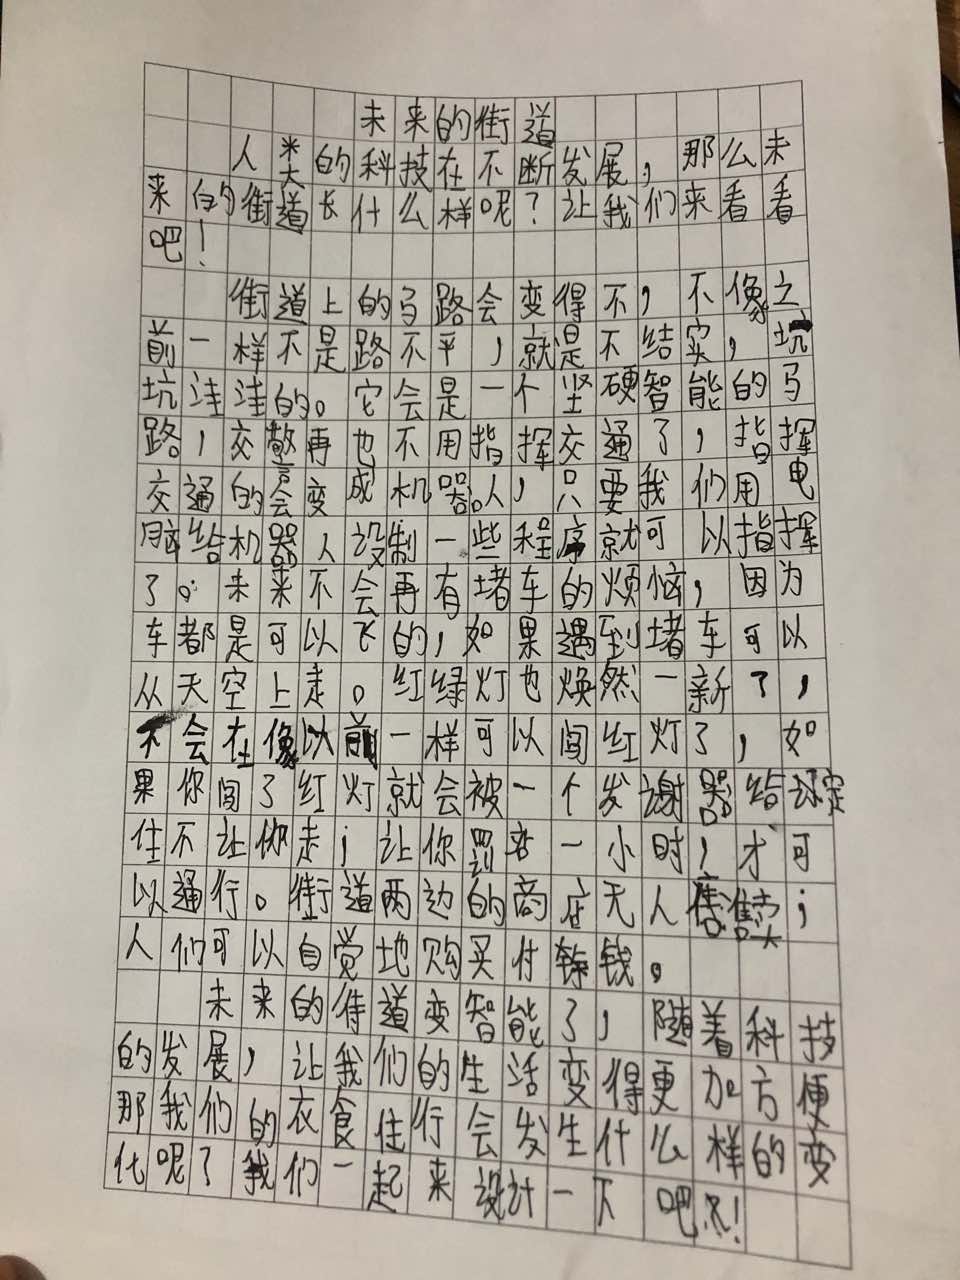 未来的街道
人类的科技在不断发展，那么未
来的街道长什么样呢？让我们来看看
吧！
街道上的马路会变得不，不像之
前一样不是路不平，就是不结实，坑
坑洼洼的。它会是一个坚硬智能的马
路，交警再也不用指挥交通了，指挥
交通的会变成机器人，只要我们用电
脑给机器人设制一些程序就可以指挥
了。未来不会再有堵车的烦恼，因为
车都是可以飞的，如果遇到堵车可以
从天空上走。红绿灯也焕然一新了，
不会在像以前一样可以闯红灯了，如
果你闯了红灯就会被一个发谢器给
住不让你走；让你罚 一小时，才可
以通行。街道两边的商店无人售卖；
人们可以自觉地购买付钱。
未来的街道变智能了，随着科技
的发展，让我们的生活变得更加方便
那我们的衣食住行会发生什么样的变
化呢了我们一起来设计一下吧！